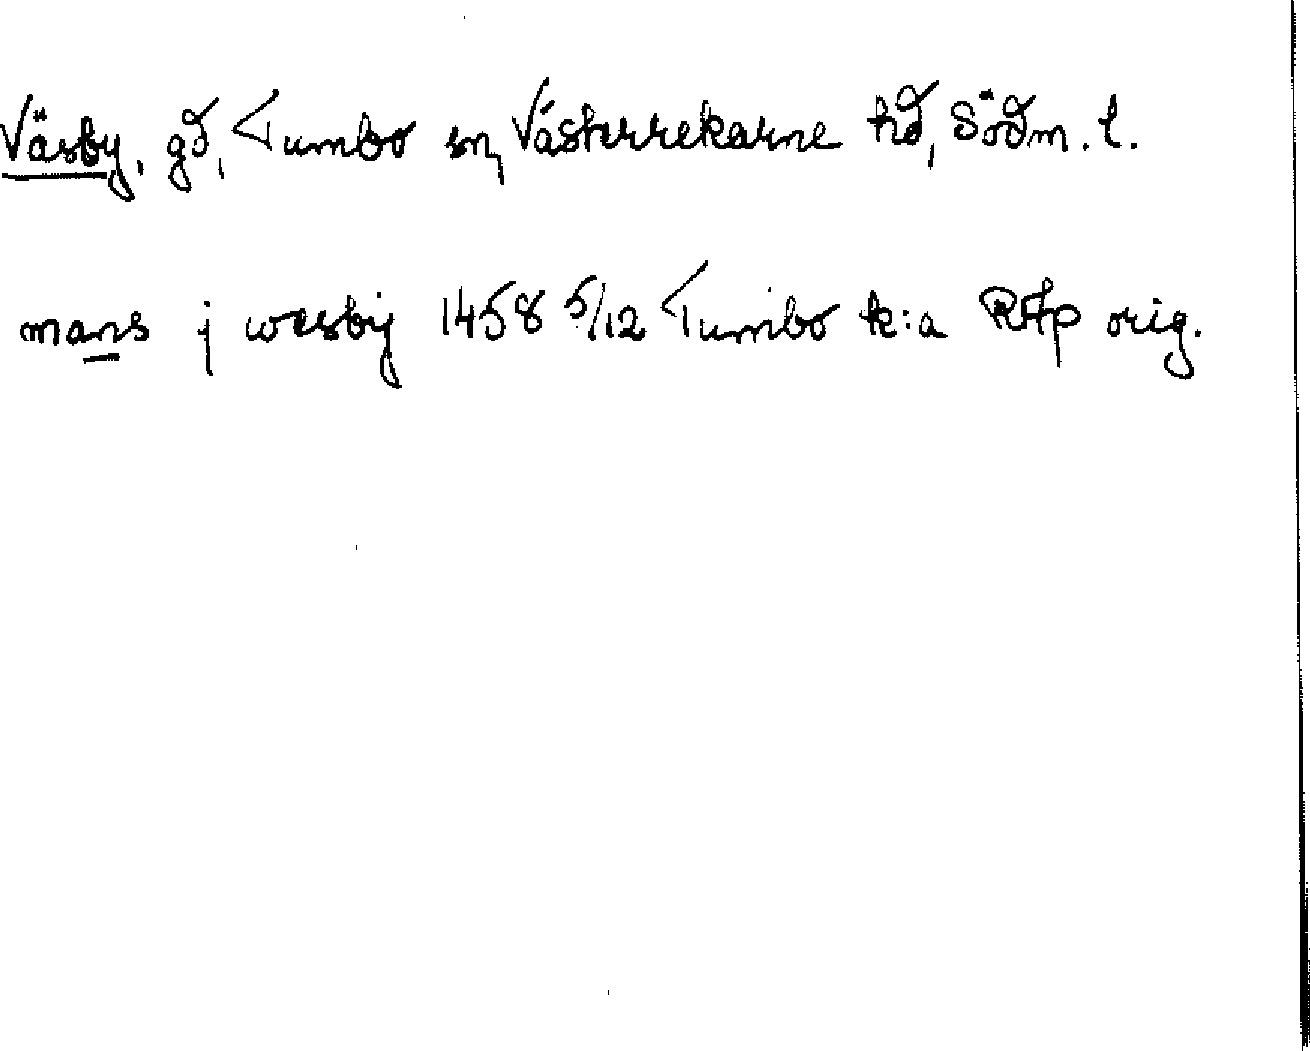 Väsby, gd, Tumbo sn, Västerrekarne hd, Södm. l.
mans j wesby 1458 5/12 Tumbo k:a RAp orig.